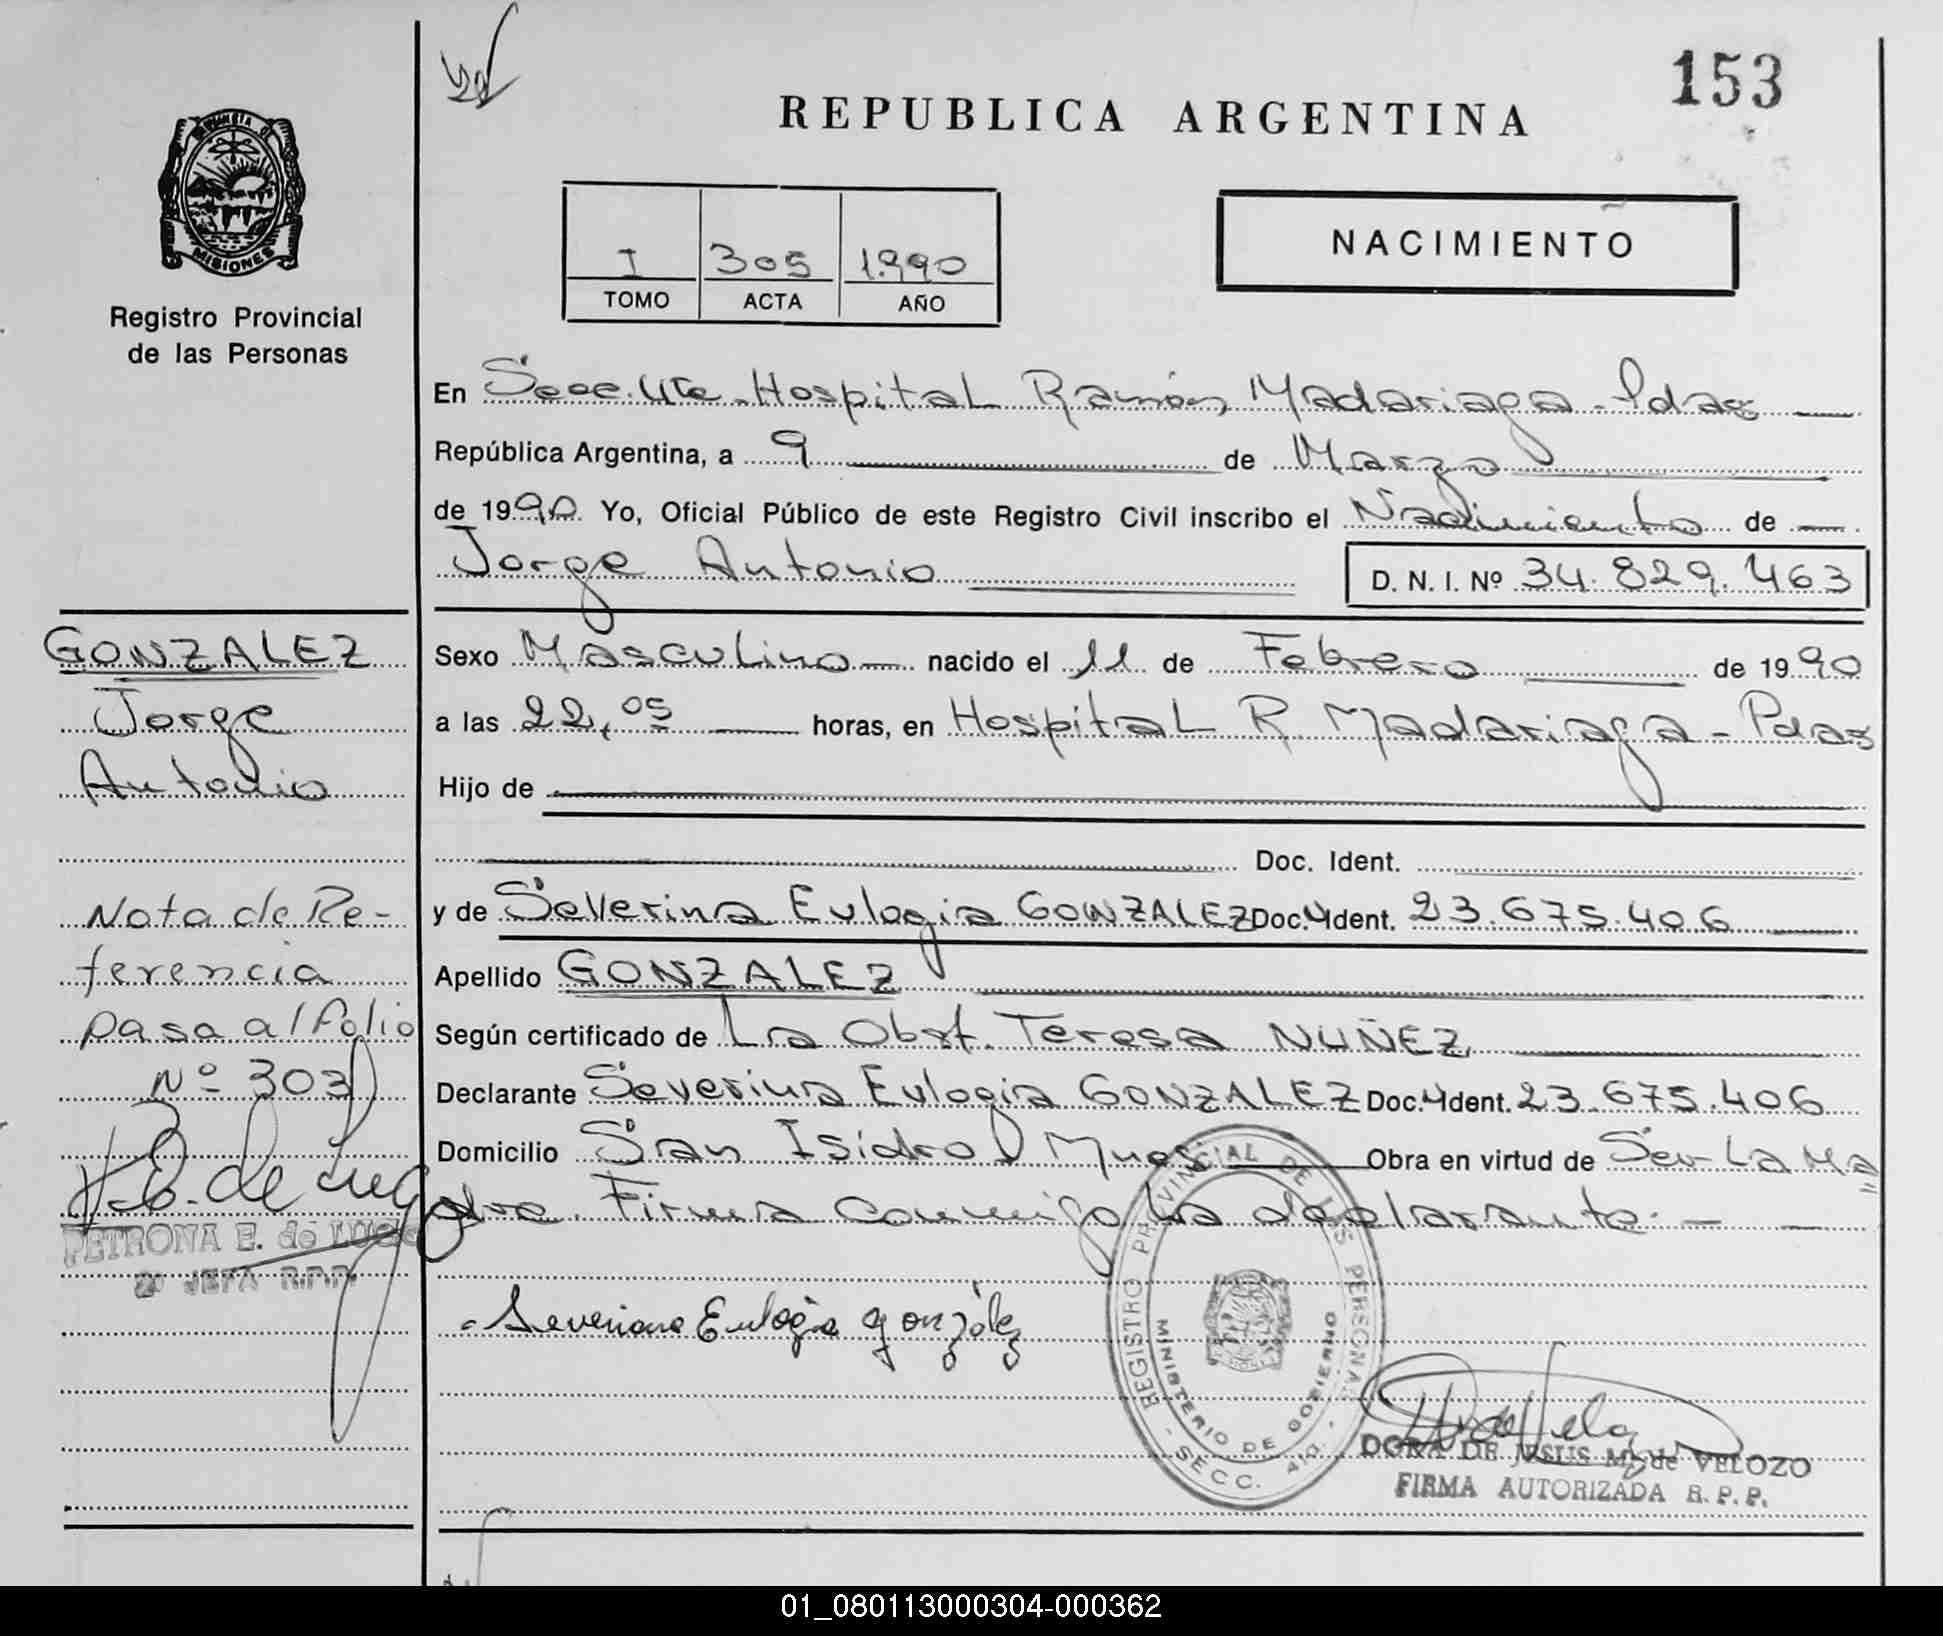 153
REPUBLICA ARGENTINA
MISIONES
Registro Provincial
de las Personas
I 305 1.990
TOMO ACTA AÑO
NACIMIENTO
En Secc. Hospital Ramón Madariaga - Pdas
República Argentina, a 9 de Marzo
de 1990 Yo, Oficial Público de este Registro Civil inscribo el Nacimiento de
Jorge Antonio
D. N. I. Nº 34.829.463
GONZALEZ
Jorge
Antonio
Sexo Masculino nacido el 11 de Febrero de 1990
a las 22,05 horas, en Hospital R. Madariaga - Pdas
Hijo de
Doc. Ident.
y de Severina Eulogia GONZALEZ Doc. Ident. 23.675.406
Apellido GONZALEZ
Según certificado de La Obst. Teresa NUÑEZ
Declarante Severina Eulogia GONZALEZ Doc. Ident. 23.675.406
Domicilio San Isidro Obra en virtud de Ser La Ma
dre. Firma conmigo La declarante. -
Nota de Re-
ferencia
pasa al folio
Nº 303
P. E. de Lugo
PETRONA E. de LUGO
2º JEFA R.P.P.
Severiana Eulogia González
REGISTRO PROVINCIAL DE LAS PERSONAS
MINISTERIO DE GOBIERNO
- SECC.
DORA DE JESUS M. de VELOZO
FIRMA AUTORIZADA R. P. P.
01_080113000304-000362